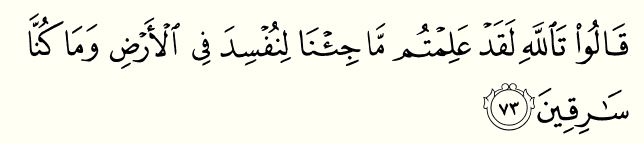 قَالُوا۟ تَٱللَّهِ لَقَدْ عَلِمْتُم مَّا جِئْنَا لِنُفْسِدَ فِى ٱلْأَرْضِ وَمَا كُنَّا
سَـٰرِقِينَ ٧٣